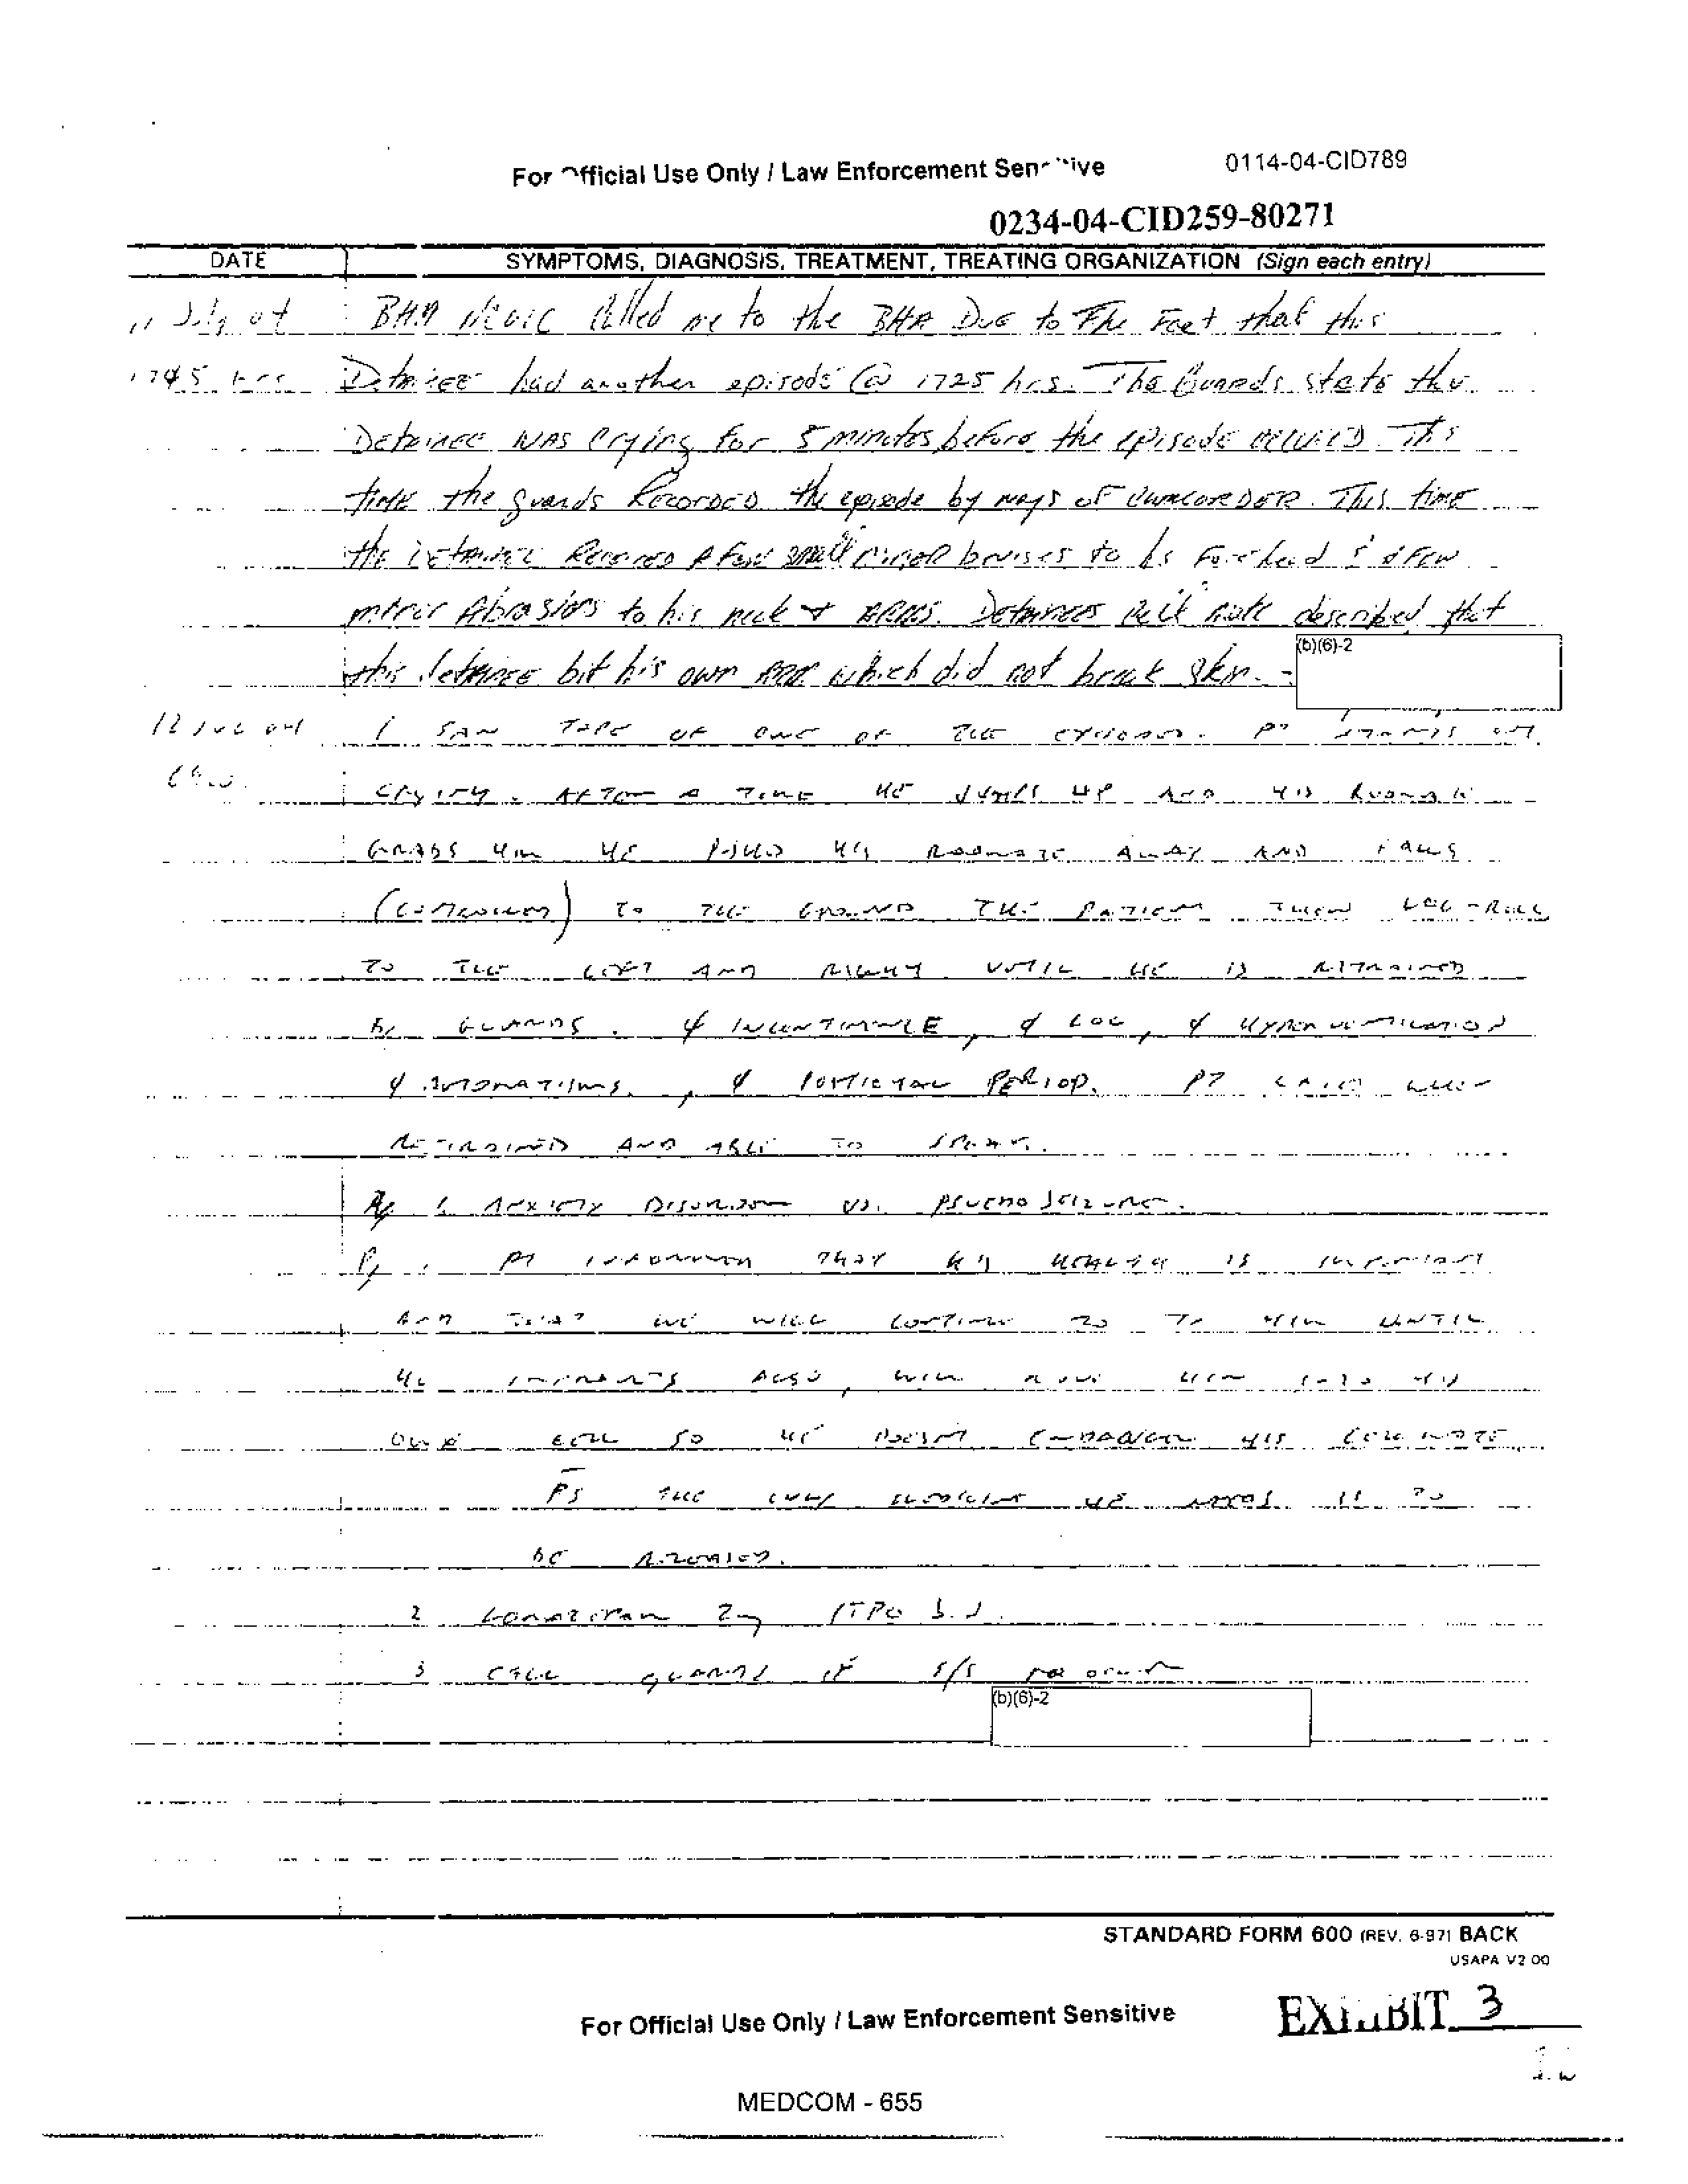 For Official Use Only / Law Enforcement Sensitive
0114-04-CID789
0234-04-CID259-80271
DATE SYMPTOMS, DIAGNOSIS, TREATMENT, TREATING ORGANIZATION (Sign each entry)
11 July 04 BHA Medic Called me to the BHA Due to The Fact that this
1745 hrs Detainee had another episode @ 1725 hrs. The Guards state the
Detainee was crying for 5 minutes before the episode occured This
time the guards Recorded the episode by ways of camcorder. This time
the Detainee Received A few small minor bruises to his Forehead & a few
minor Abrasions to his neck & ARMS. Detainees cell mate described that
this detainee bit his own arm which did not break skin. -
(b)(6)-2
12 Jul 04 I SAW TAPE OF ONE OF THE EPISODES. PT STARTS OUT
CRYING. AFTER A TIME HE JUMPS UP AND HIS ROOMMATE
GRABS HIM HE PUSHES HIS ROOMMATE AWAY AND FALLS
(CONTROLLED) TO THE GROUND THE PATIENT THEN LOG-ROLLS
TO THE LEFT AND RIGHT UNTIL HE IS RESTRAINED
BY GUARDS. ∅ INCONTINENCE, ∅ LOC, ∅ HYPERVENTILATION
∅ AUTOMATISMS, ∅ POSTICTAL PERIOD. PT CALM WHEN
RESTRAINED AND ABLE TO SPEAK.
A/ 1. ANXIETY DISORDER VS. PSEUDOSEIZURE.
P/ 1 PT INFORMED THAT HIS HEALTH IS IMPORTANT
AND THAT WE WILL CONTINUE TO TX HIM UNTIL
HE IMPROVES ALSO, WILL MOVE HIM INTO HIS
OWN CELL SO HE DOESN'T ENDANGER HIS CELLMATE
PT THE ONLY HE NEEDS IS TO
BE
2 LORAZEPAM 2mg 1TPO
3 CALL GUARDS IF S/S
(b)(6)-2
STANDARD FORM 600 (REV. 6-97) BACK
USAPA V2.00
For Official Use Only / Law Enforcement Sensitive
EXHIBIT 3
MEDCOM - 655